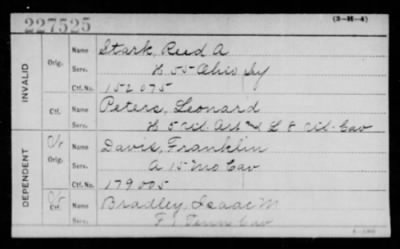 227525
(3-H-4)
INVALID
Orig.
Name Stark, Reed A
Serv. H 55 Ohio Inf
Ctf. No. 152075
Ctf.
Name Peters, Leonard
Serv. H 5 Art & L 8 Cav
DEPENDENT
Orig.
Name Davis, Franklin
Serv. A 15 Mo Cav
Ctf. No. 179005
Ctf.
Name Bradley, Isaac M
Serv. F 1 Tenn Cav